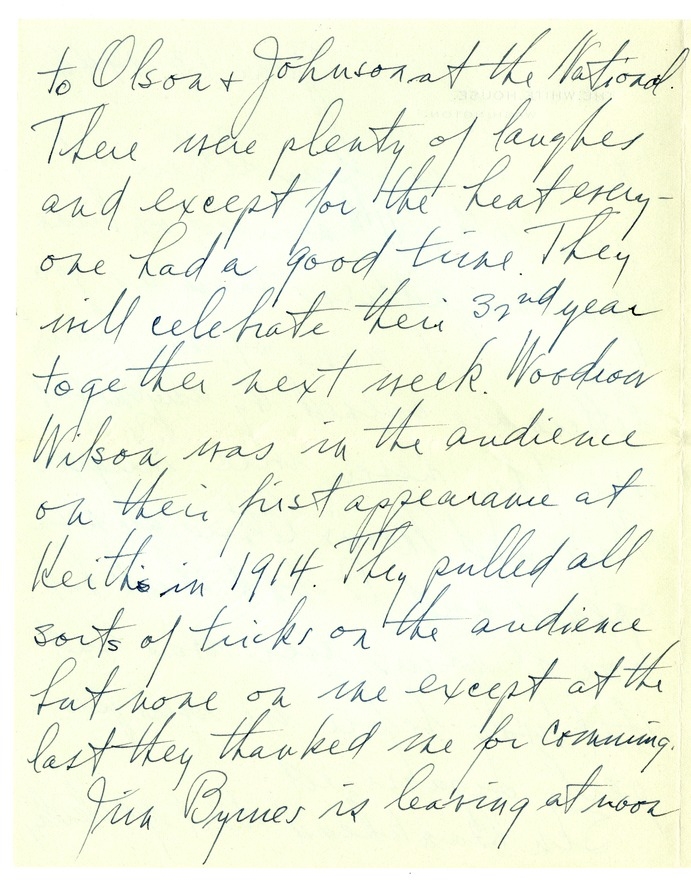 to Olson + Johnson at the National.
There were plenty of laughes
and except for the heat every-
one had a good time. They
will celebrate their 32nd year
together next week. Woodrow
Wilson was in the audience
on their first appearance at
Keith's in 1914. They pulled all
sorts of tricks on the audience
but none on me except at the
last they thanked me for comming.
Jim Byrnes is leaving at noon